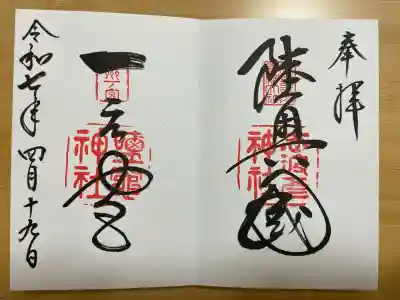 奉拝
陸奥國
志波彦神社
一之宮
鹽竈神社
令和七年四月十九日